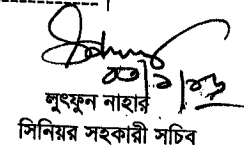 লুৎফুন নাহার
সিনিয়র সহকারী সচিব